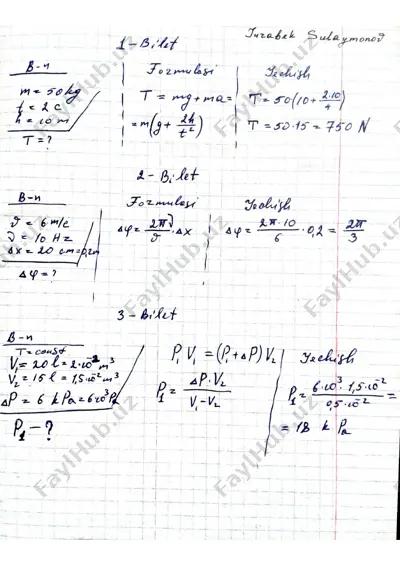 Jurabek Sulaymonov
1-Bilet
B-n
m = 50 kg
t = 2 c
h = 10 m
T = ?
Formulasi
T = mg + ma =
= m(g + 2h/t²)
Yechish
T = 50(10 + 2·10/4)
T = 50·15 = 750 N
2-Bilet
B-n
ϑ = 6 m/c
ν = 10 Hz
Δx = 20 cm = 0,2m
Δφ = ?
Formulasi
Δφ = 2πν/ϑ · Δx
Yechish
Δφ = 2π·10/6 · 0,2 = 2π/3
3-Bilet
B-n
T = const
V₁ = 20 l = 2·10⁻² m³
V₂ = 15 l = 1,5·10⁻² m³
ΔP = 6 k Pa = 6·10³ Pa
P₁ - ?
P₁ V₁ = (P₁ + ΔP) V₂
P₁ = ΔP·V₂/V₁-V₂
Yechish
P₁ = 6·10³·1,5·10⁻²/0,5·10⁻² =
= 18 k Pa
FaylHub.uz